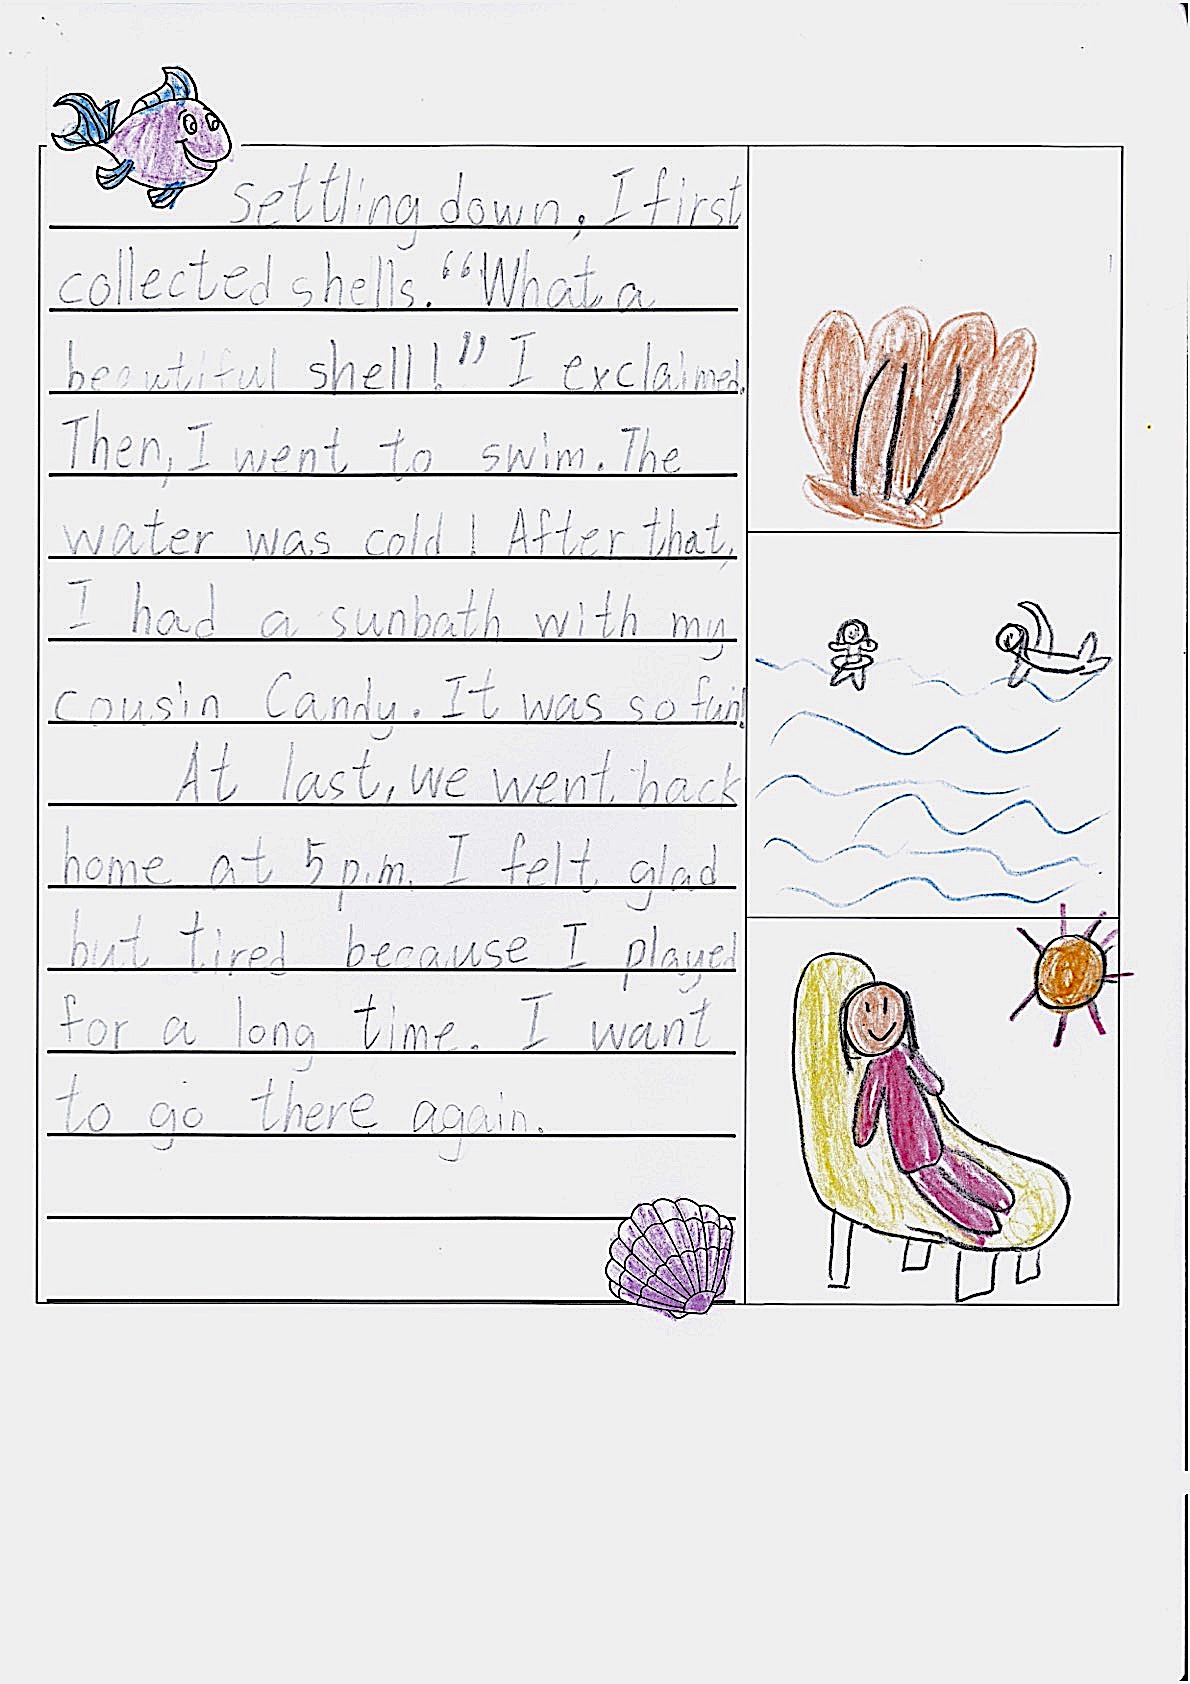 settling down, I first
collected shells. “What a
beautiful shell!” I exclaimed.
Then, I went to swim. The
water was cold! After that,
I had a sunbath with my
cousin Candy. It was so fun!
At last, we went back
home at 5 p.m. I felt glad
but tired because I played
for a long time. I want
to go there again.